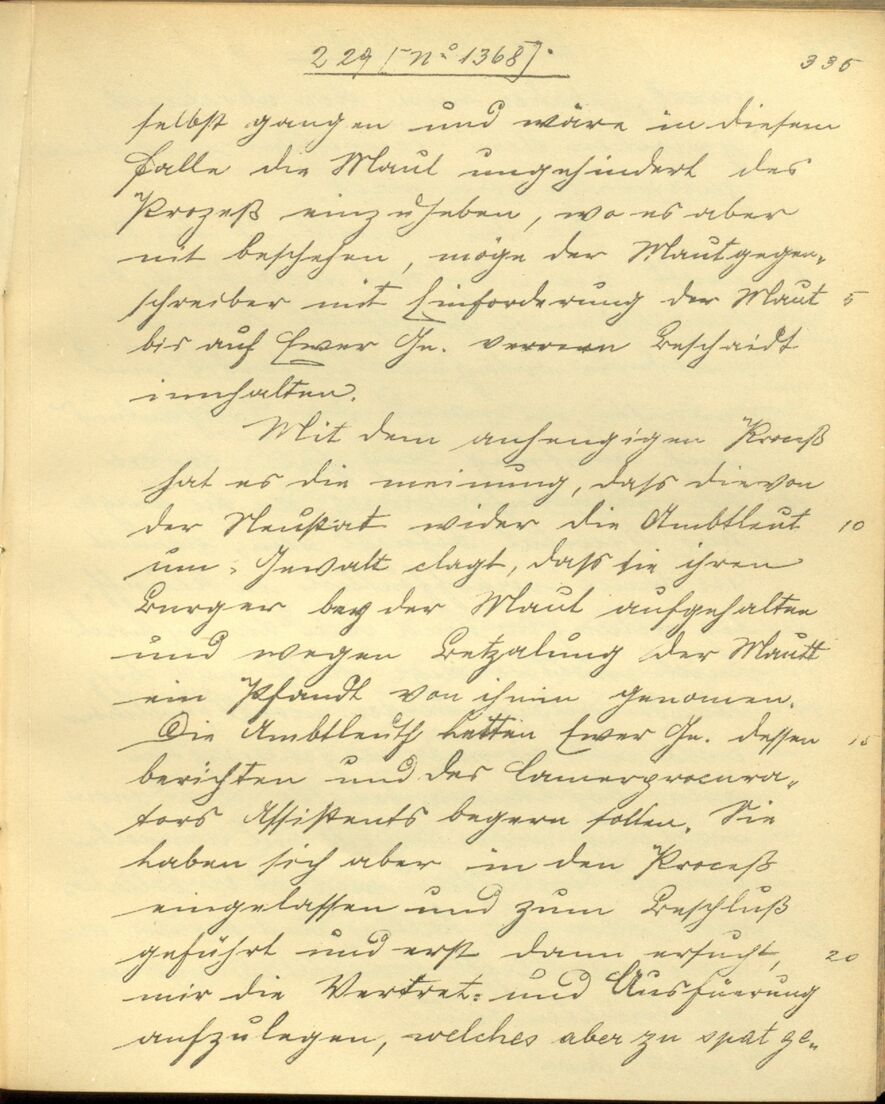 229 [N° 1368].
335
selbst gangen und wäre in diesem
Falle die Maut ungehindert des
Prozeß einzuheben, wo es aber
nit beschehen, möge der Mautgegen-
schreiber mit Einforderung der Maut 5
bis auf Ewer Gn. verrern Beschaidt
innhalten.
Mit dem anhengigen Proceß
hat es die meinung, dass die von
der Neustat wider die Ambtleut 10
um Gewalt clagt, dass sie ihren
Burger bey der Maut aufgehalten
und wegen Betzalung der Mautt
ein Pfandt von ihmm genomen.
Die Ambtleuth hetten Ewer Gn. dessen 15
berichten und des Camerprocura-
tors Assistents begern sollen. Sie
haben sich aber in den Proceß
eingelassen und zum Beschluß
geführt und erst dann ersucht, 20
mir die Vertret- und Ausfüerung
aufzulegen, welches aber zu spat ge-